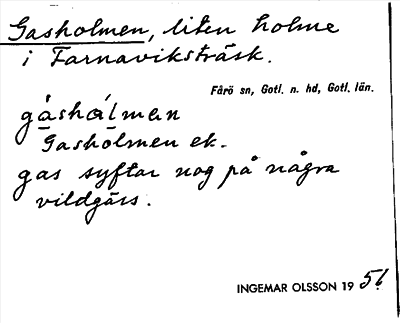 Gasholmen, liten holme
i Farnaviksträsk.
Fårö sn, Gotl. n. hd, Gotl. län.
gåshålmen
Gasholmen ek.
gas syftar nog på några
vildgäss.
INGEMAR OLSSON 1956